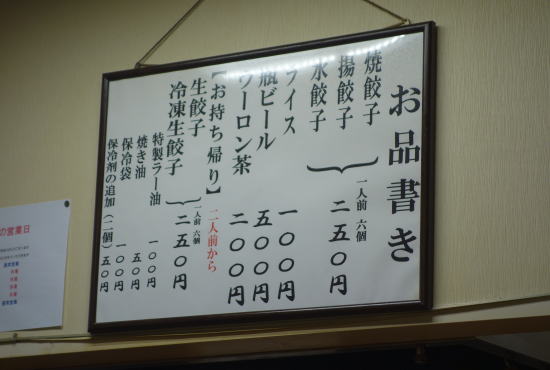 お品書き
焼餃子
揚餃子
水餃子
一人前 六個
二五〇円
ライス 一〇〇円
瓶ビール 五〇〇円
ウーロン茶 二〇〇円
【お持ち帰り】二人前から
生餃子
冷凍生餃子
一人前 六個
二五〇円
特製ラー油 一〇〇円
焼き油 五〇円
保冷袋 一〇〇円
保冷剤の追加(二個)五〇円
の営業日